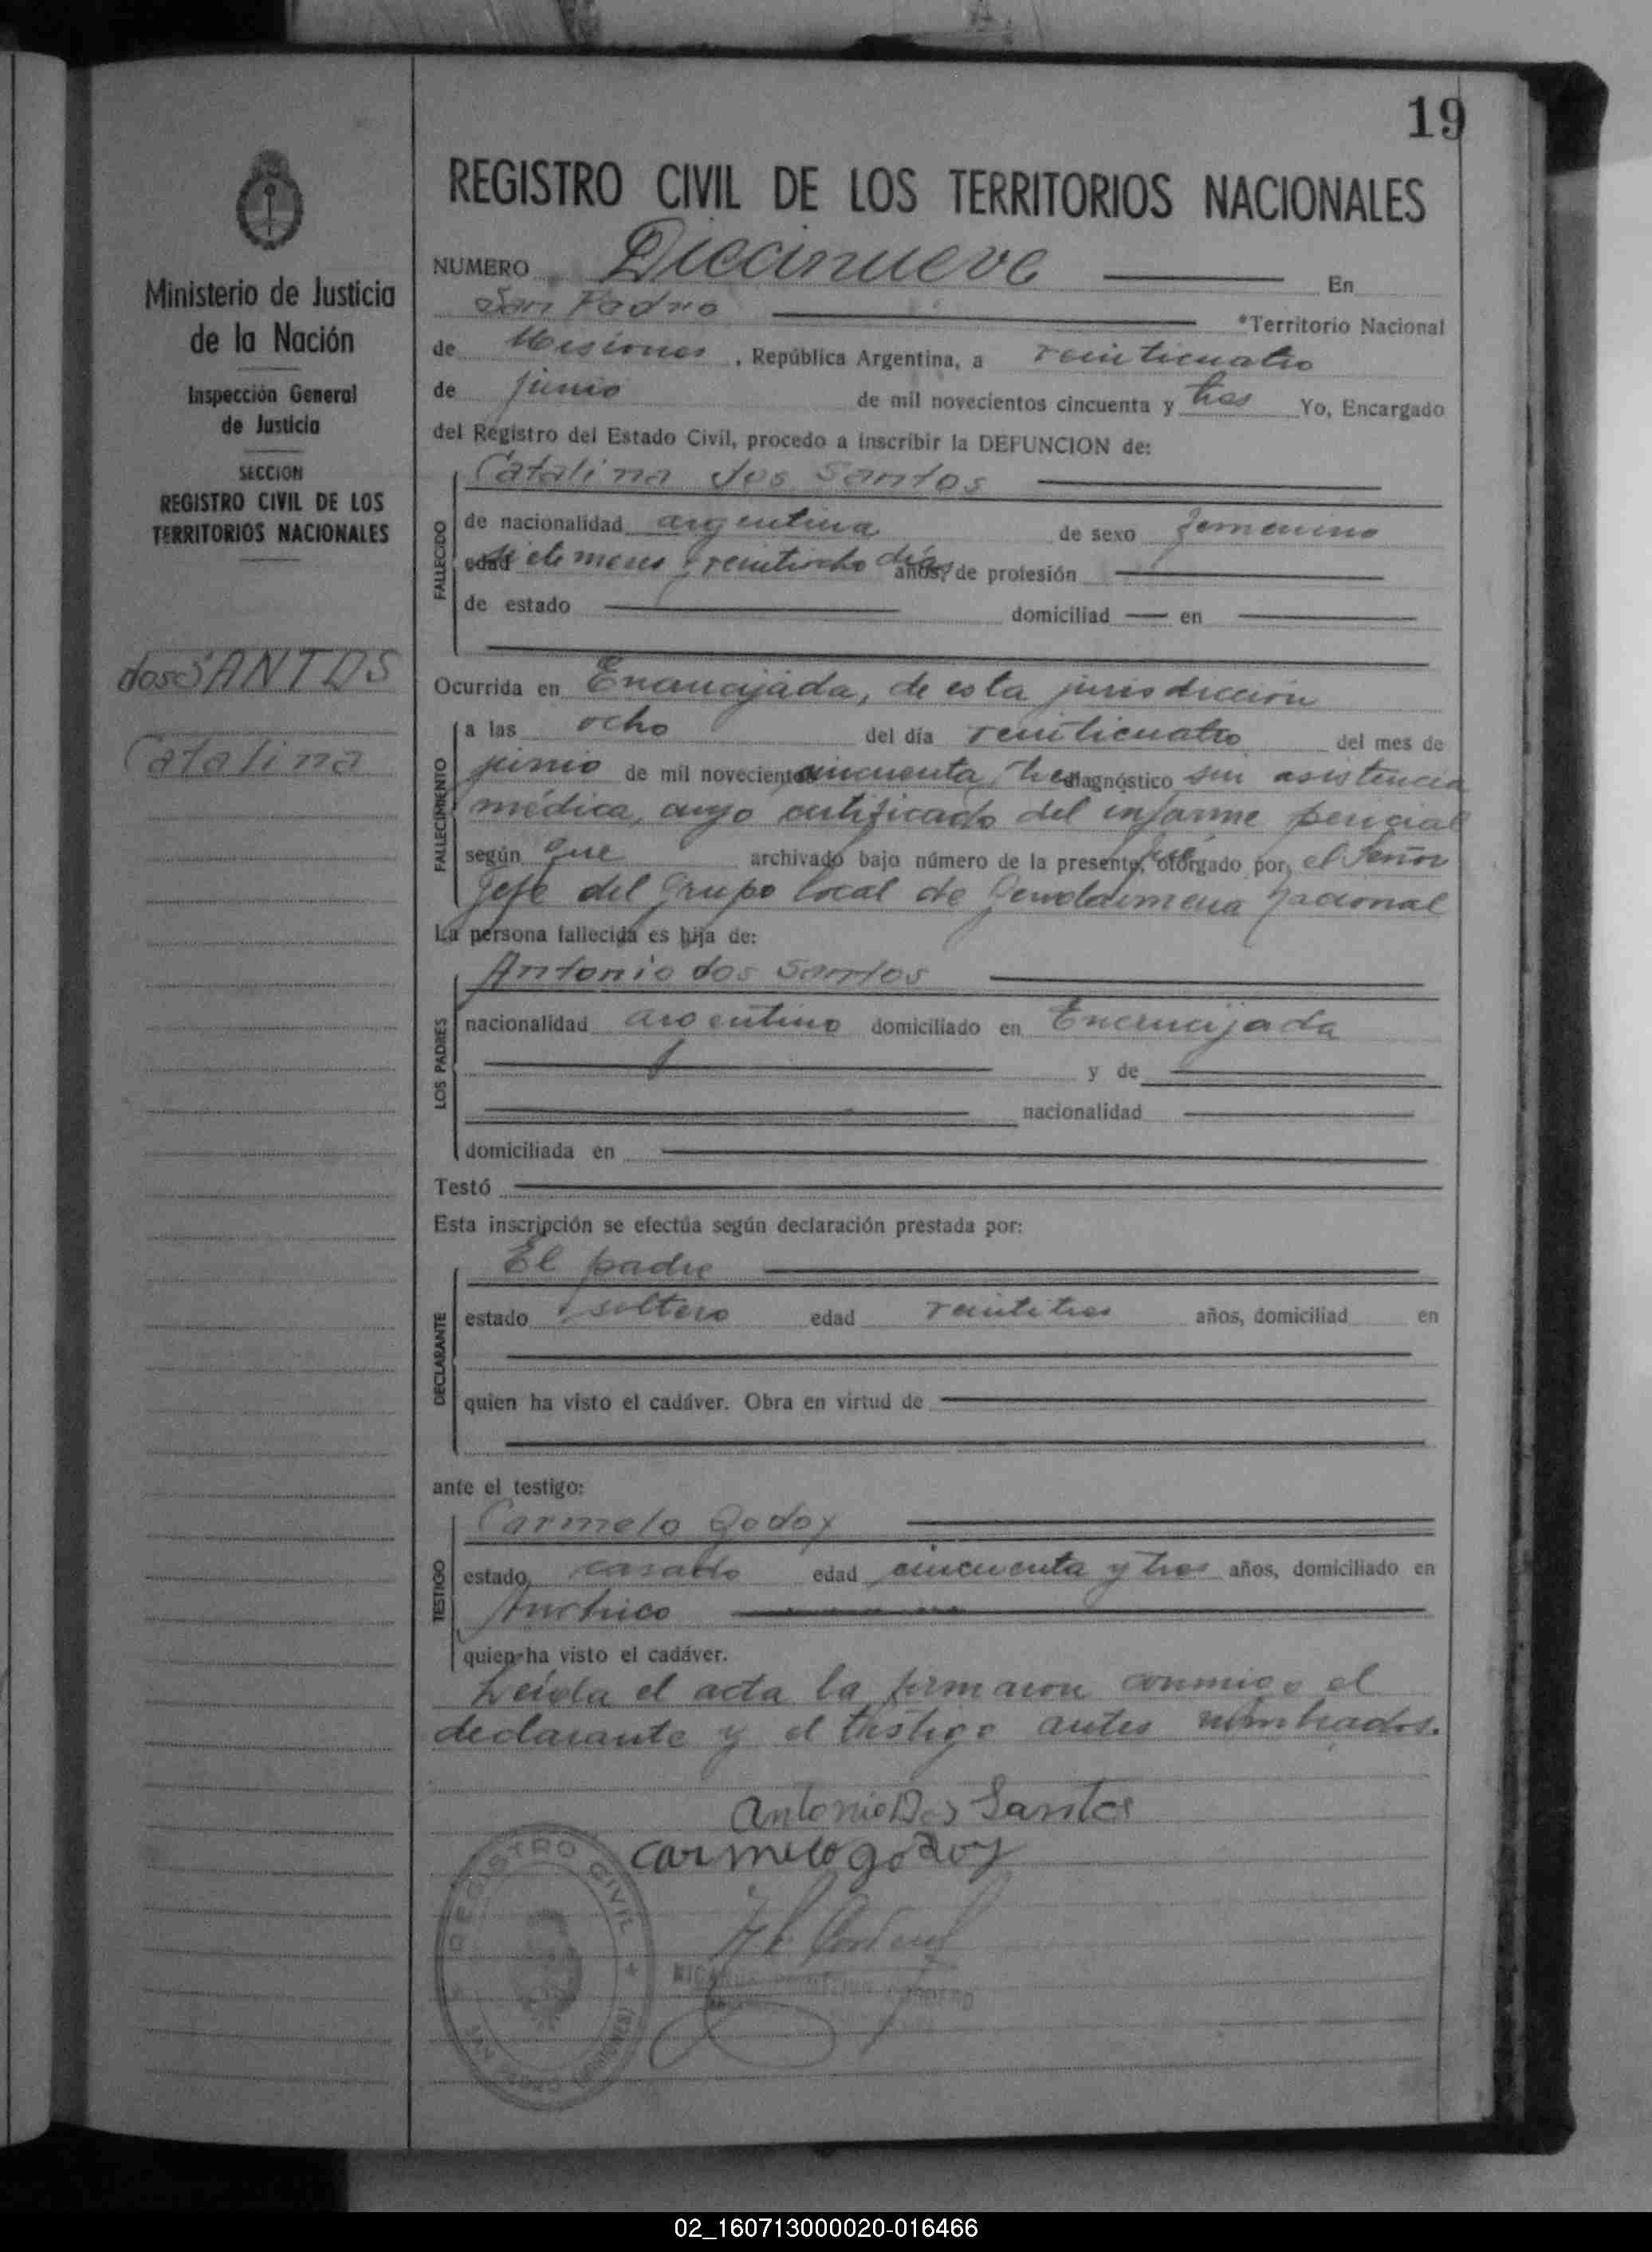 19
REGISTRO CIVIL DE LOS TERRITORIOS NACIONALES
Ministerio de Justicia
de la Nación
Inspección General
de Justicia
SECCION
REGISTRO CIVIL DE LOS
TERRITORIOS NACIONALES
dos SANTOS
Catalina
NUMERO Diecinueve En
San Pedro *Territorio Nacional
de Misiones, República Argentina, a veinticuatro
de junio de mil novecientos cincuenta y tres Yo, Encargado
del Registro del Estado Civil, procedo a inscribir la DEFUNCION de:
FALLECIDO
Catalina dos Santos
de nacionalidad argentina de sexo femenino
edad siete meses y veintiocho días años, de profesión
de estado domiciliad en
Ocurrida en Encrucijada, de esta jurisdicción
FALLECIMIENTO
a las ocho del día veinticuatro del mes de
junio de mil novecientos cincuenta y tres diagnóstico sin asistencia
médica, cuyo certificado del informe pericial
según que archivado bajo número de la presente, fué otorgado por el Señor
Jefe del Grupo local de Gendarmeria Nacional
La persona fallecida es hija de:
LOS PADRES
Antonio dos Santos
nacionalidad argentino domiciliado en Encrucijada
y de
nacionalidad
domiciliada en
Testó
Esta inscripción se efectúa según declaración prestada por:
DECLARANTE
El padre
estado soltero edad veintitres años, domiciliad en
quien ha visto el cadáver. Obra en virtud de
ante el testigo:
TESTIGO
Carmelo Godoy
estado casado edad cincuenta y tres años, domiciliado en
quien ha visto el cadáver.
Leida el acta la firmaron conmigo el
declarante y el testigo antes nombrados.
Antonio Dos Santos
carmelo godoy
REGISTRO CIVIL
SAN PEDRO (MISIONES)
02_160713000020-016466